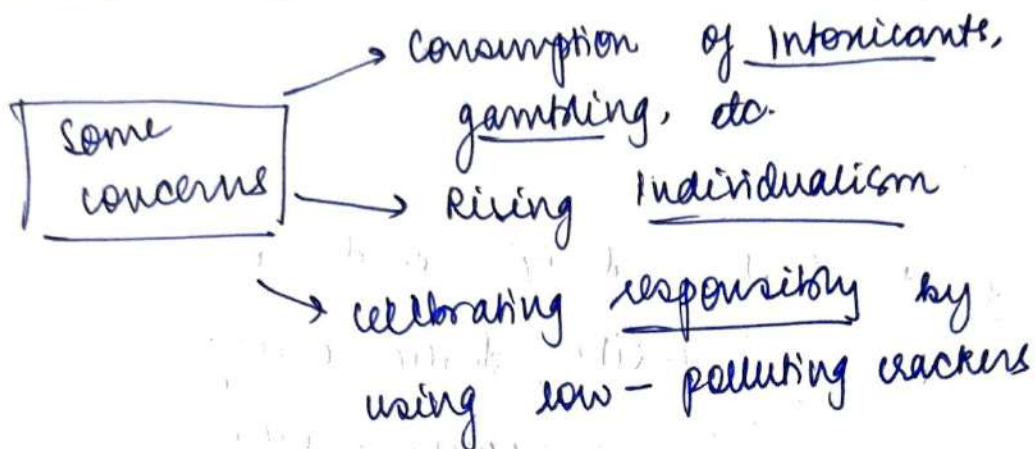 Some
concerns
Consumption of Intoxicants,
gambling, etc.
Rising Individualism
celebrating responsibly by
using low - polluting crackers